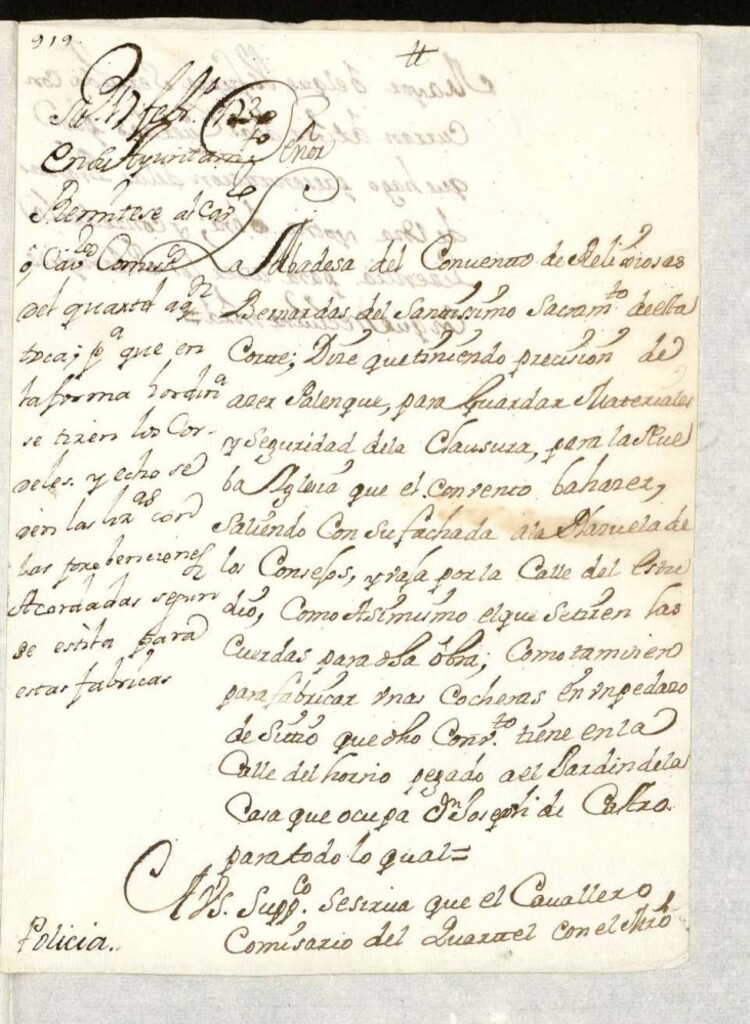 919.
#
17 febr.º
En su Ayuntamto
Remitese al Cavº
ô, Cavro Comisº
del quartel aqn
toca; pª que en
la forma hordinª
se tiren los Cor-
deles. y echo se
den las lizas con
las prebenciones
Acordadas segun
se estila para
estas fabricas
Policia.
Señor
La Abadesa del Convento de Relixiosas
Bernardas del Santissimo Sacramto. de esta
Corte; Dize que tiniendo precision de
azer Palenque, para Guardar Materiales
y Seguridad de la Clausura, para la Nue
ba Yglesia que el convento ba hazer,
Saliendo Con su fachada a la Plazuela de
los Consejos, y vaja por la Calle del Estu
dio, Como Asimismo el que se tiren las
Cuerdas para dha obra; Como tamvien
para fabricar vnas Cocheras en vn pedazo
de Sitio que dho Convto. tiene en la
Calle del horno pegado a el Jardin de la
Casa que ocupa Dn Joseph de Castro
para todo lo qual=
A VS. Suppco. se sirva que el Cavallero
Comisario del Quartel con el Mro